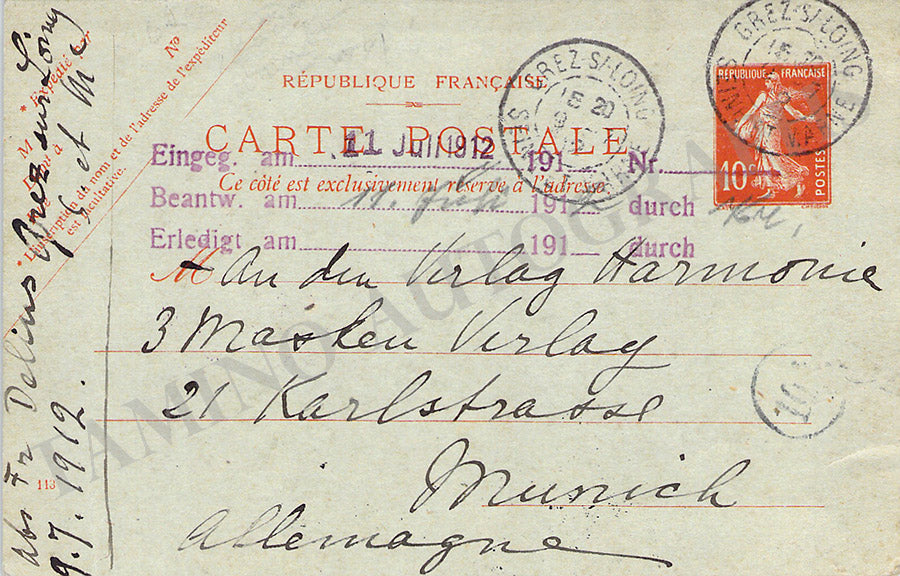 RÉPUBLIQUE FRANÇAISE
CARTE POSTALE
Ce côté est exclusivement réservé à l'adresse.
Eingeg. am 11 Juli 1912 191 Nr.
Beantw. am 11. Juli 1912 durch
Erledigt am 191 durch
M An den Verlag Harmonie
3 Masken Verlag
21 Karlstrasse
Munich
Allemagne
Abs Fr Delius Grez sur Loing
S et M
9.7.1912.
* Expédié
M
à
Nº
* L'inscription du nom et de l'adresse de l'expéditeur
est facultative.
113
GREZ-S/-LOING
15 20
GREZ-S/-LOING
15
RÉPUBLIQUE FRANÇAISE
10c
POSTES
TAMINO AUTOGRAPHS